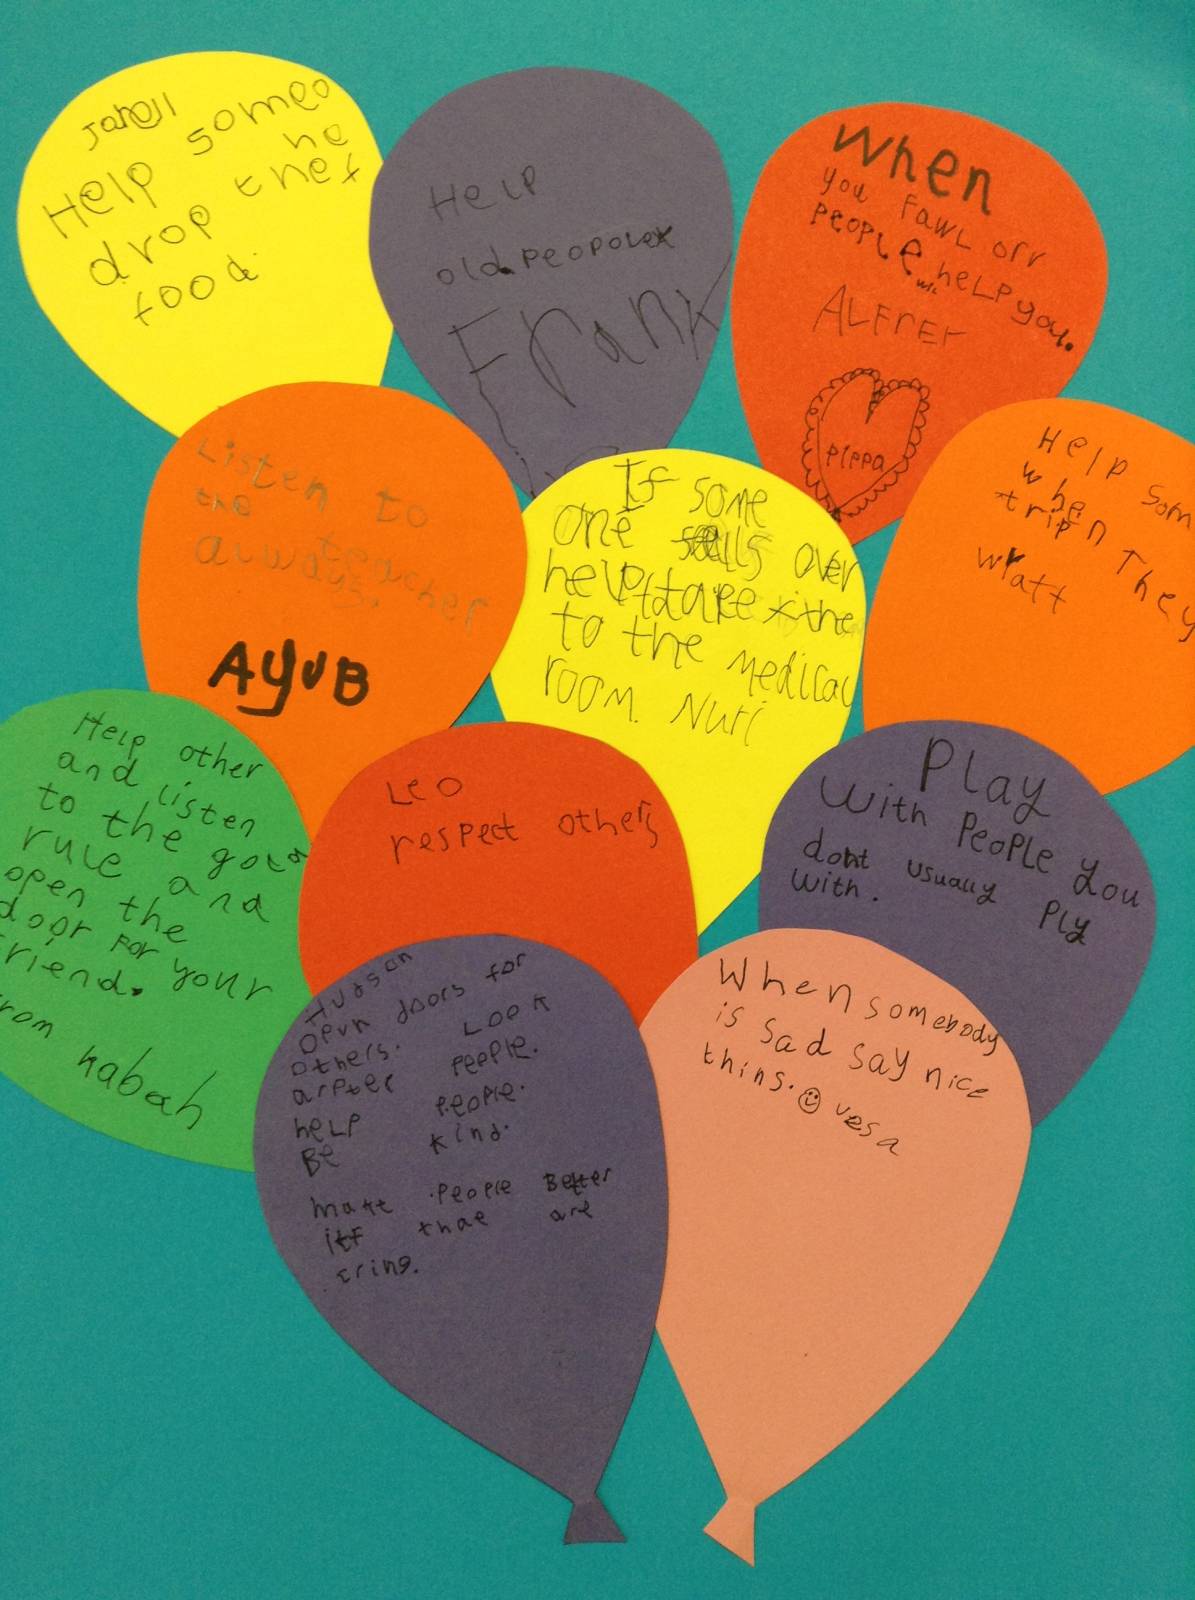 Help someo
ne
drop thef
food.
Help
old peopole
Frank
When
you FawL orr
PeoPLe heLP you.
ALFrer
PiPPa
Listen to
the teacher
always.
AyuB
If some
one falls over
help take the
to the Medical
room. Nuri
Help Som
when They
trip
wyatt
Help other
and listen
to the gold
rule and
open the
door For your
friend.
rom kabah
Leo
respect others
Play
With PeoPle you
dont usually Ply
with.
Hudson
open doors for
others. Look
arfter PeePle.
heLP People.
Be kind.
make People Better
itf thae are
cring.
When somebody
is sad say nice
thins. vesa